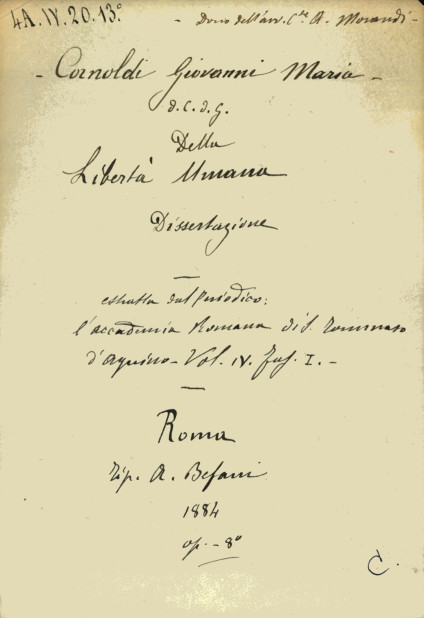 4A. IV. 20. 13.°
- Dono dell'avv. C.te A. Morandi -
- Cornoldi Giovanni Maria -
d. C. d. G.
Della
Libertà Umana
Dissertazione
estratta dal Periodico:
l'accademia Romana di S. Tommaso
d'Aquino - Vol. IV. Fas. I. -
Roma
Tip. A. Befani
1884
op. - 8°
C.